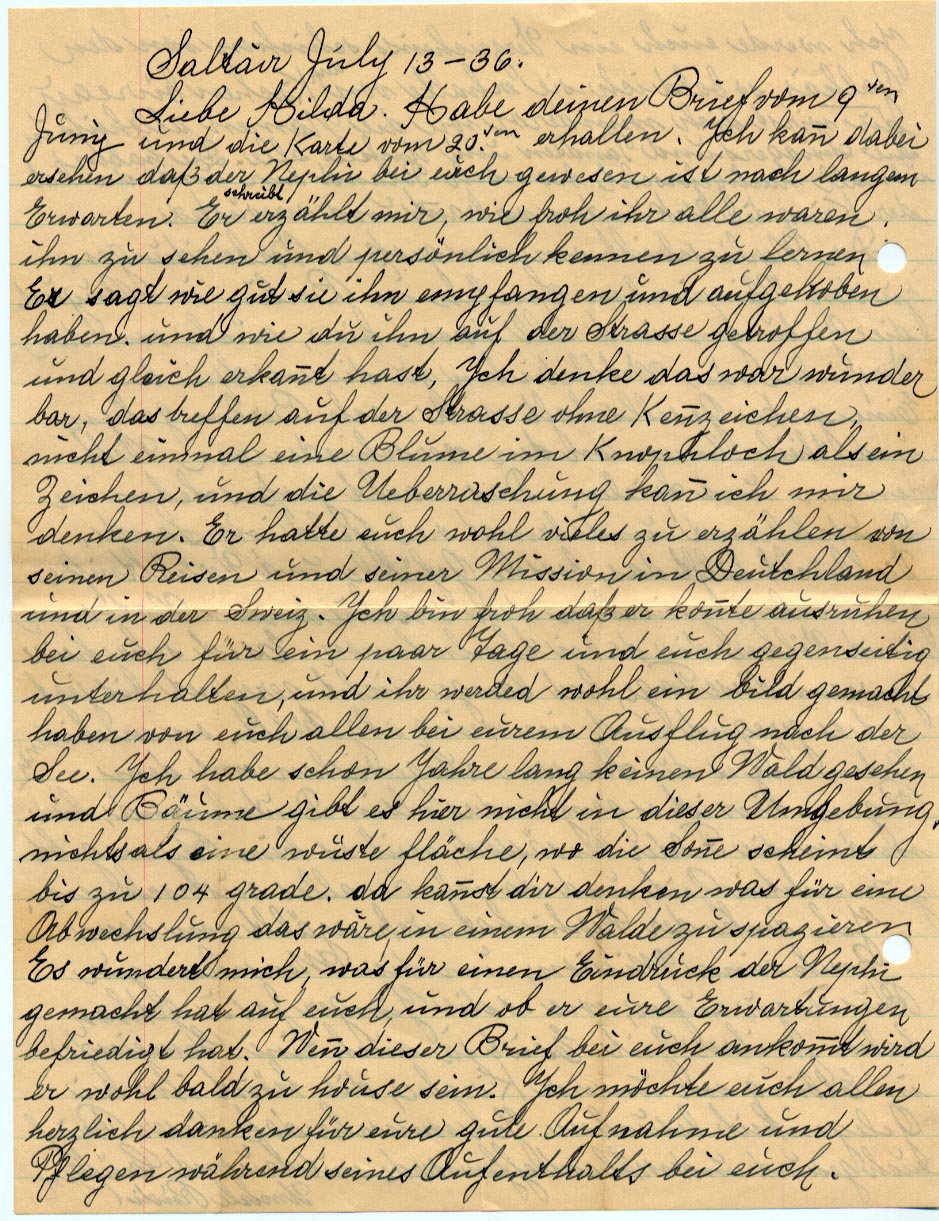 Saltair July 13 - 36.
Liebe Hilda. Habe deinen Brief vom 9ten
Junij und die Karte vom 20.ten erhallen. Ich kan̄ dabei
ersehen daß der Nephi bei euch gewesen ist nach langem
Erwarten. Er schreibt erzählt mir, wie froh ihr alle waren.
ihn zu sehen und persönlich kennen zu lernen
Er sagt wie gut sie ihn empfangen und aufgehoben
haben. und wie du ihn auf der Strasse getroffen
und gleich erkan̄t hast, Ich denke das war wunder
bar, das treffen auf der Strasse ohne Ken̄zeichen,
nicht einmal eine Blume im Knophloch als ein
Zeichen, und die Ueberraschung kan̄ ich mir
denken. Er hatte euch wohl vieles zu erzählen von
seinen Reisen und seiner Mission in Deutchland
und in der Sweiz. Ich bin froh daß er kon̄te ausruhen
bei euch für ein paar Tage und euch gegenseitig
unterhalten, und ihr werded wohl ein bild gemacht
haben von euch allen bei eurem Ausflug nach der
See. Ich habe schon Jahre lang keinen Wald gesehen
und Bäume gibt es hier nicht in dieser Umgebung,
nichts als eine wüste fläche, wo die Son̄e scheint
bis zu 104 grade. da kan̄st dir denken was für eine
Abwechslung das wäre, in einem Walde zu spazieren
Es wundert mich, was für einen Eindruck der Nephi
gemacht hat auf euch, und ob er eure Erwartungen
befriedigt hat. Wen̄ dieser Brief bei euch ankom̄t wird
er wohl bald zu house sein. Ich möchte euch allen
herzlich danken für eure gute Aufnahme und
Pflegen während seines Aufenthalts bei euch.